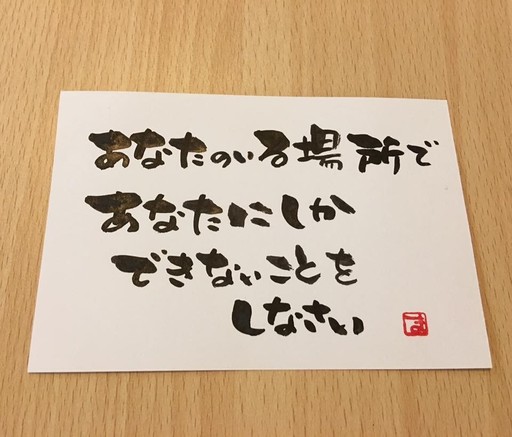 あなたのいる場所で
あなたにしか
できないことを
しなさい